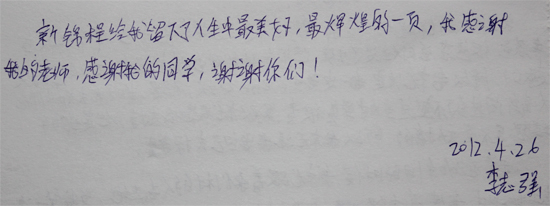 新锦程给我留下了人生中最美好,最辉煌的一页,我感谢
我的老师,感谢我的同学,谢谢你们!
2012.4.26
李志强